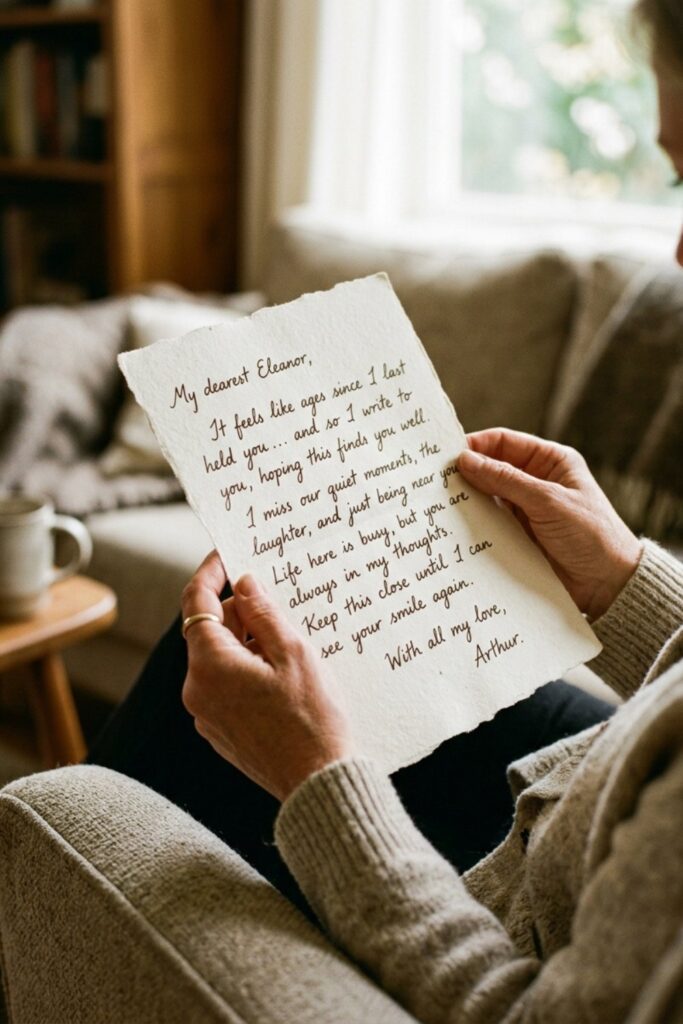 My dearest Eleanor,
It feels like ages since I last
held you... and so I write to
you, hoping this finds you well.
I miss our quiet moments, the
laughter, and just being near you
Life here is busy, but you are
always in my thoughts.
Keep this close until I can
see your smile again.
With all my love,
Arthur.